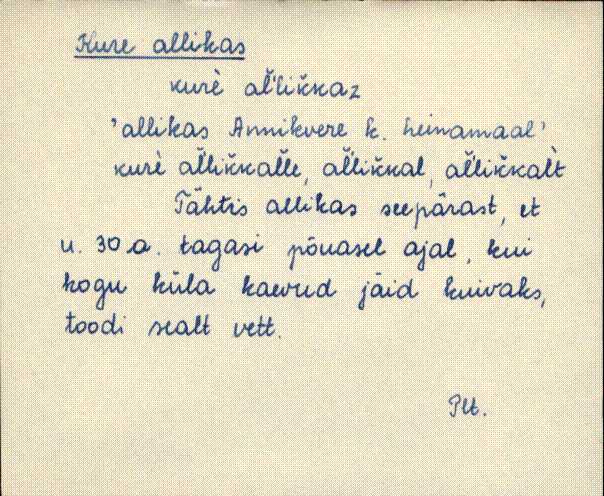 Kure allikas
kurè al̆'lik̆kaz
'allikas Annikvere k. heinamaal'
kurè al̆likkal̆le, al̆'lik̆kal, al̆'lik̆kal̀t
Tähtis allikas seepärast, et
u. 30 a. tagasi põuasel ajal, kui
kogu küla kaevud jäid kuivaks,
toodi sealt vett.
Plt.